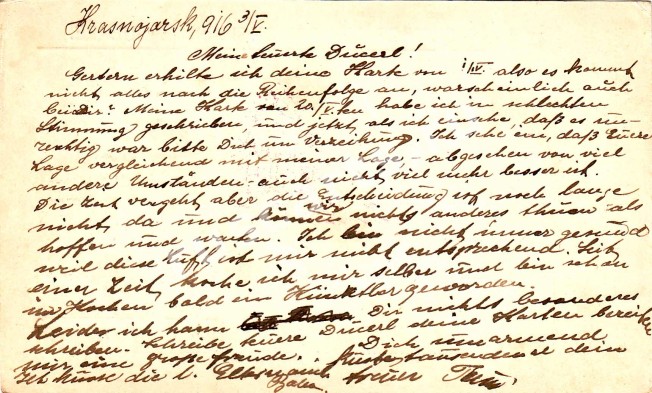 Krasnojarsk, 916 3/V.
Meine teuerste Ducerl!
Gestern erhilte ich deine Karte von 1/IV. also es kommt
nicht alles nach die Reihenfolge an, warscheinlich auch
bei Dir? Meine Kart von 20/ ten habe ich in schlechten
Stimmung geschrieben, und jetzt, als ich einsehe, daß es un-
rechtig war bitte Dich um Verzeihung. Ich sehe ein, daß Euere
Lage vergleichend mit meiner Lage, - abgesehen von viel
andere Umständen - auch nicht viel mehr besser ist.
Die Zeit vergeht aber die Entscheidung ist noch lange
nicht da und wir können nichts anderes thuen als
hoffen und warten. Ich bin nicht immer gesund
weil diese Luft ist mir nicht entsprechend. Seit
einer Zeit koche ich mir selber und bin schon
im Kochen bald ein Künstler geworden.
Leider ich kann Dir nichts besonderes
schreiben. Schreibe teuere Ducerl deine Karten
mir eine große freude. Dich umarmend
Ich küsse die l. Eltern und tausenden dein
treuer